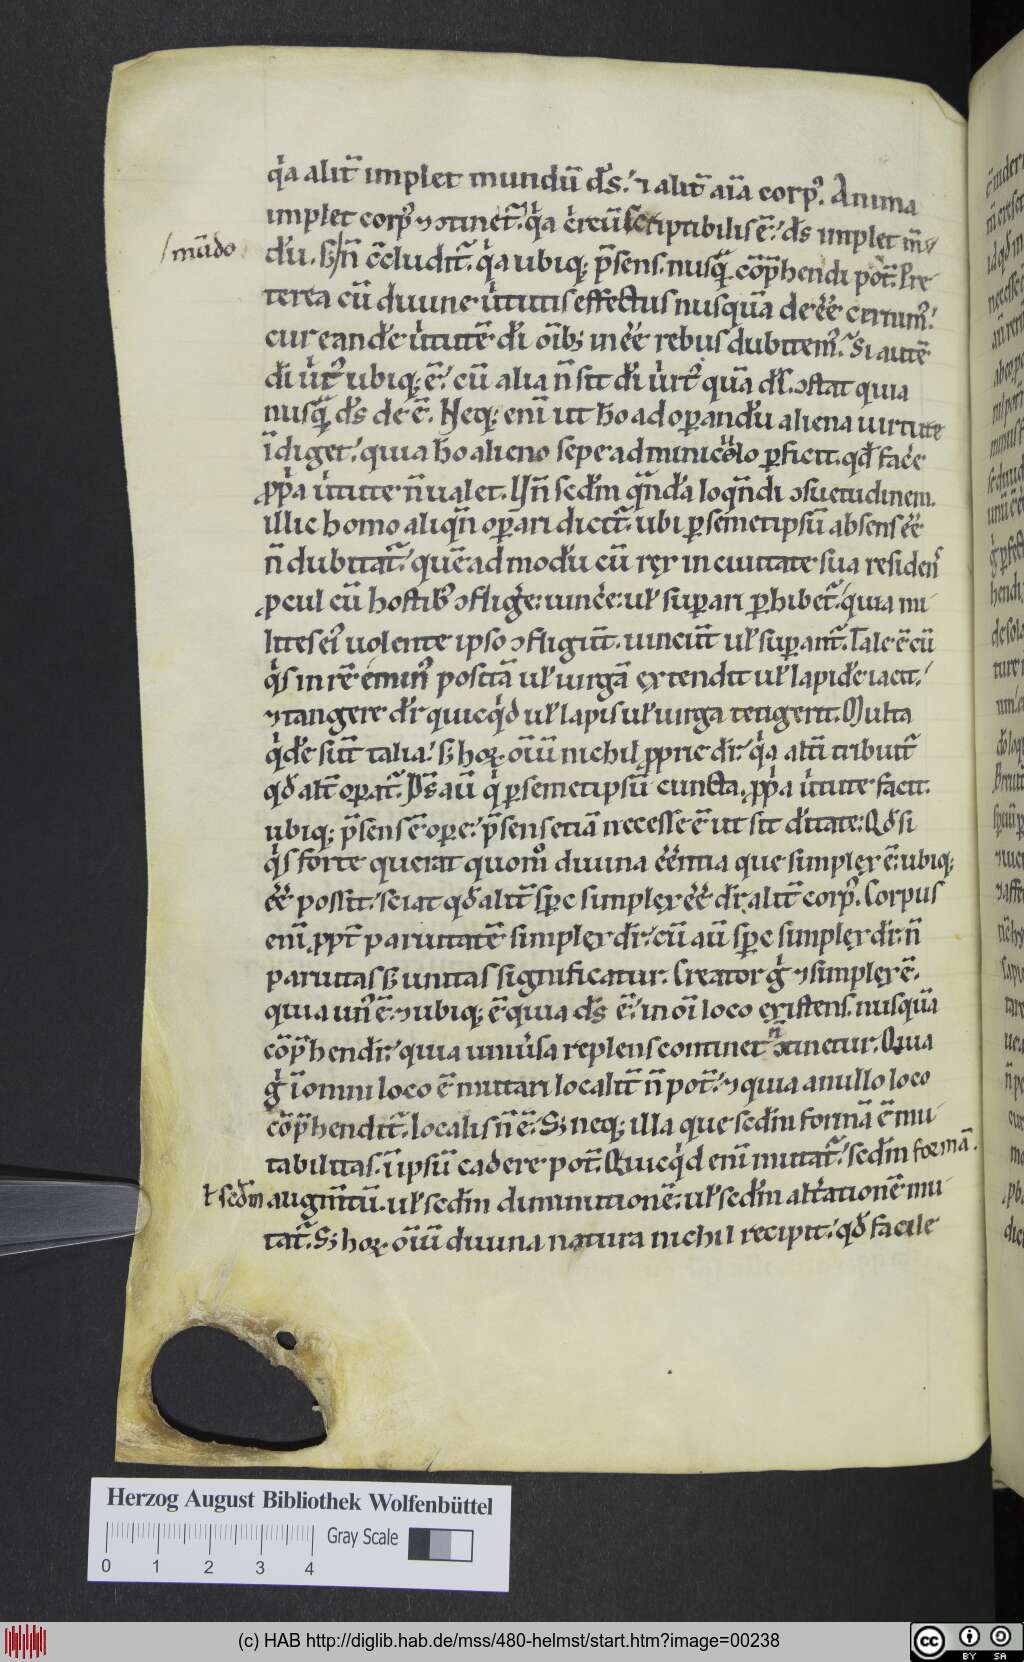 q͛a alit̄ implet mundū d̄s. ⁊ alit̄ aīa corp̉. Anima
implet corp̉ ⁊ ↄtinet᷑. q͛a c͛cūsc͛iptibilis ē. d̄s implet mū
/mūdo
dū. sꝫ /n̄ ↄ̄cludit᷑. q͛a ubiqꝫ p̄sens. nusq̄ cōp̄hendi pot̄. Pre
terea cū diuine u͛tutis effectus nusquā deēē cernim̉.
cur eandē u͛tutē dī oībꝫ inēē rebus dubitem̉. Si autē
dī u͛t̉ ubiqꝫ ē. cū alia n̄ sit dī u͛t̉ quā d̄s. ↄstat quia
nusq̄ d̄s deē. Neqꝫ enī ut ho ad oꝑandū aliena uirtute
īdiget. quia ho alieno sepe adminicolo ꝑficit. qd̄ fac̄e
ꝓp͛a u͛tute n̄ ualet. Nā scd̄m q̄nda loq̄ndi ↄsuetudinem.
illic homo aliqn̄ oꝑari dicit᷑. ubi ꝑ semetipsū absens ēē
n̄ dubitat᷑. quēadmodū cū rex in ciuitate sua residens
ꝓcul cū hostibꝫ ↄfliḡe. uinc̄e. ul̄ suꝑari ꝑhibet᷑. quia mi
lites eỉ uolente ipso ↄfligūt. uincūt ul̄ suꝑant᷑. Tale ē cū
q͛s in rē emin̉ positā ul̄ uirgā extendit ul̄ lapidē iacit.
⁊ tangere dr̄ quicq͛d ul̄ lapis ul̄ uirga tetigerit. Multa
q͛dē sūt talia. sꝫ hoꝝ oīū nichil ꝓprie dr̄. q͛a altī tribuit᷑
qd̄ alt̄ oꝑat᷑. D̄s aū q͛ ꝑ semetipsū cuncta ꝓp͛a u͛tute facit.
ubiqꝫ p̄sens ē oꝑe. p̄sens etiā necesse ē ut sit d̄itate. Qd̄ si
q͛s forte querat quom̊ diuina ēēntia que simplex ē ubiqꝫ
ēē possit. sciat qd̄ alit̄ sp̄c simplex ēē dr̄. alit̄ corp̉. Corpus
enī ꝓpt̄ paruitatē simplex dr̄. cū aū sp̄c simplex dr̄. n̄
paruitas sꝫ unitas significatur. Creator g͛ ⁊ simplex ē.
quia un̉ ē. ⁊ ubiqꝫ ē quia d̄s ē. in oī loco existens. nusquā
cōp̄hendit᷑. quia uniu͛sa replens continet n̄ ↄtinetur. Quia
g͛ ī omni loco ē mutari localit̄ n̄ pot̄. ⁊ quia a nullo loco
cōp̄hendit᷑. localis n̄ ē. Sꝫ neqꝫ illa que scd̄m formā ē mu
tabilitas. ī ipsū cadere pot̄. Quicq͛d enī mutat᷑. scd̄m formā.
ł scd̄m augm̄tū. ul̄ scd̄m diminutionē. ul̄ scd̄m alt͛ationē mu
tat᷑. Sꝫ hoꝝ oīū diuina natura nichil recipit. qd̄ facile
Herzog August Bibliothek Wolfenbüttel
Gray Scale
0 1 2 3 4
(c) HAB http://diglib.hab.de/mss/480-helmst/start.htm?image=00238
cc BY SA